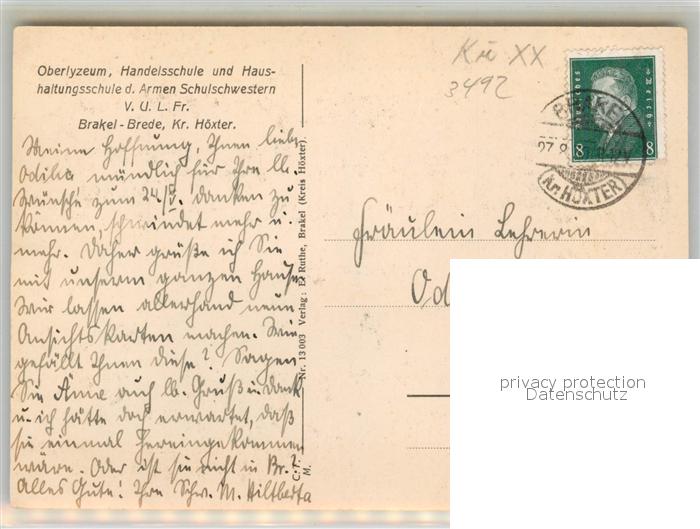 Oberlyzeum, Handelsschule und Haus-
haltungsschule d. Armen Schulschwestern
V. U. L. Fr.
Brakel-Brede, Kr. Höxter.
Meine Hoffnung, Ihnen liebe
Odila mündlich für Ihre lb.
Wünsche zum 24/V. danken zu
können, schwindet mehr u.
mehr. Daher grüße ich Sie
mit unserm ganzen Hause.
Wir lassen allerhand neue
Ansichtskarten machen. Wie
gefällt Ihnen diese? Sagen
Sie Änne auch lb. Gruß u. Dank
u. ich hätte doch erwartet, daß
sie einmal hereingekommen
wäre. Oder ist sie nicht in Br.?
Alles Gute! Ihre Schw. M. Hiltberta
Nr. 13 003 Verlag: E. Ruthe, Brakel (Kreis Höxter).
C. T.
M.
3492
Deutsches Reich
8 8
BRAKEL
27.8
(Kr. HÖXTER)
Fräulein Lehrerin
Od
privacy protection
Datenschutz